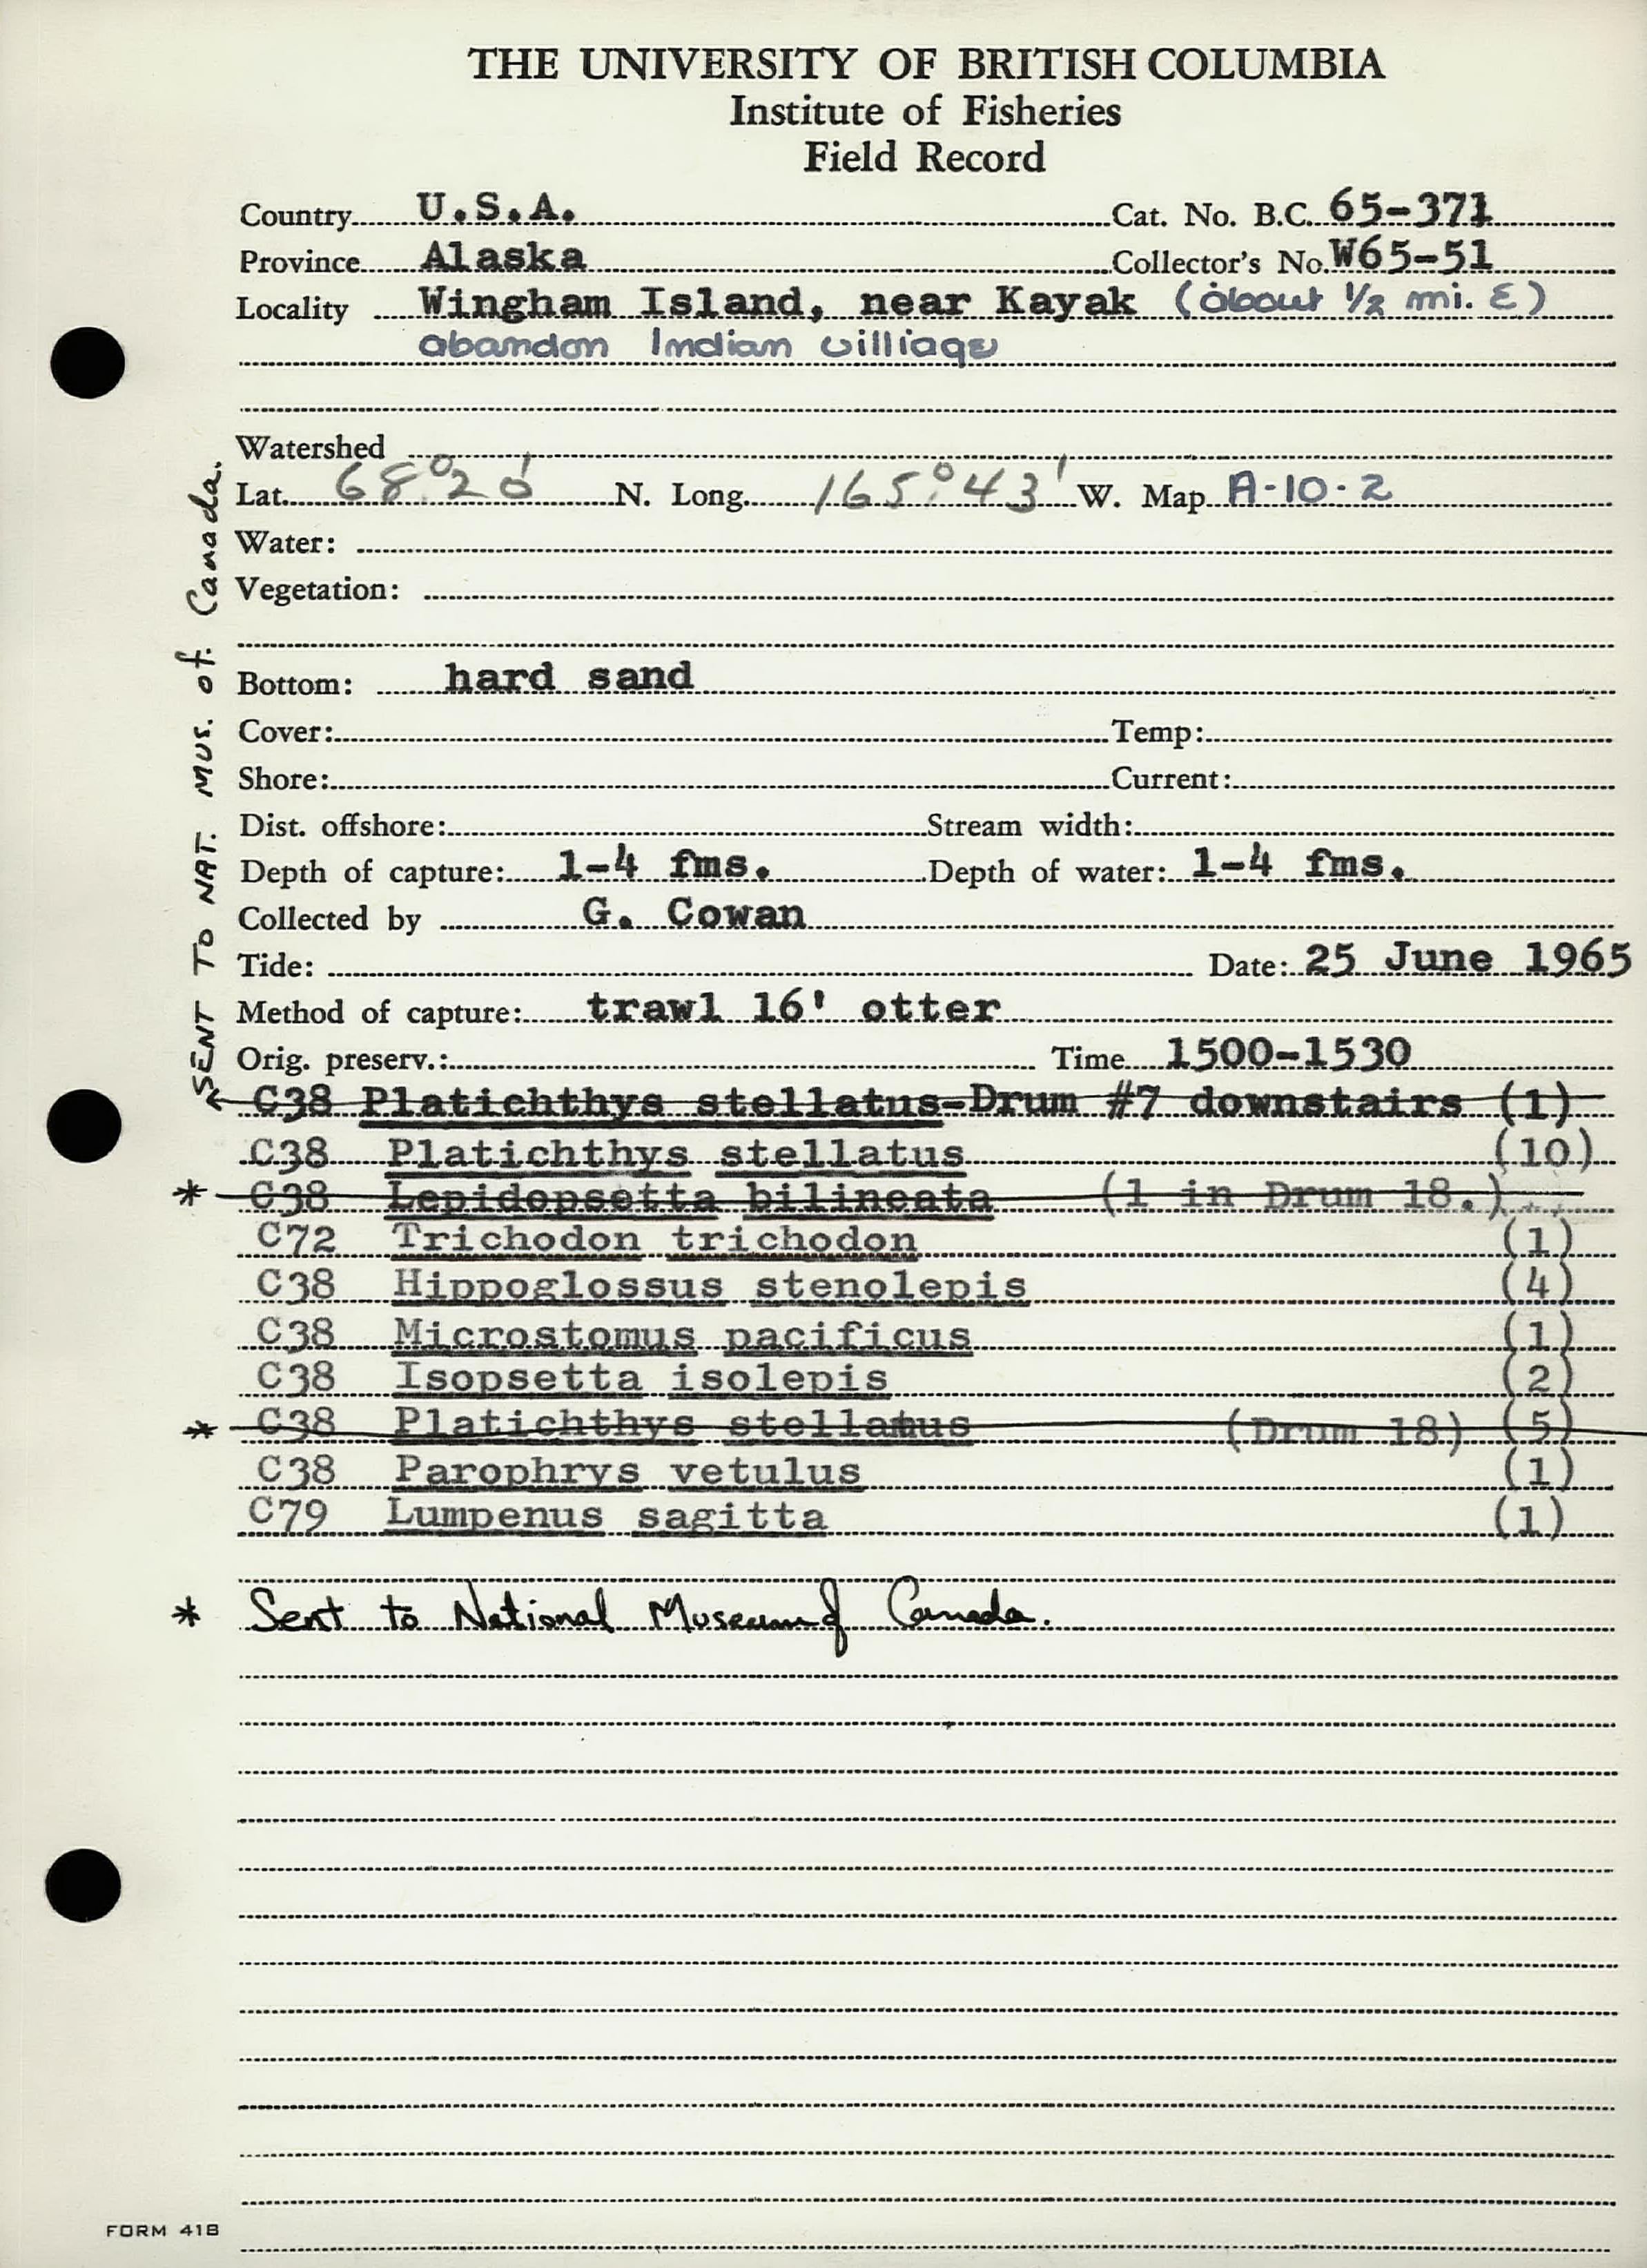 THE UNIVERSITY OF BRITISH COLUMBIA
Institute of Fisheries
Field Record
Country U.S.A. Cat. No. B.C. 65-371
Province Alaska Collector's No. W65-51
Locality Wingham Island, near Kayak (about 1/2 mi. E)
abandon Indian villiage
Watershed
Lat. 68°20' N. Long. 165°43' W. Map A-10-2
Water:
Vegetation:
Bottom: hard sand
Cover: Temp:
Shore: Current:
Dist. offshore: Stream width:
Depth of capture: 1-4 fms. Depth of water: 1-4 fms.
Collected by G. Cowan
Tide: Date: 25 June 1965
Method of capture: trawl 16' otter
Orig. preserv.: Time 1500-1530
SENT TO NAT. MUS. of Canada.
C38 Platichthys stellatus-Drum #7 downstairs (1)
C38 Platichthys stellatus (10)
* C38 Lepidopsetta bilineata (1 in Drum 18.)
C72 Trichodon trichodon (1)
C38 Hippoglossus stenolepis (4)
C38 Microstomus pacificus (1)
C38 Isopsetta isolepis (2)
* C38 Platichthys stellatus (Drum 18) (5)
C38 Parophrys vetulus (1)
C79 Lumpenus sagitta (1)
* Sent to National Museum of Canada.
FORM 41B